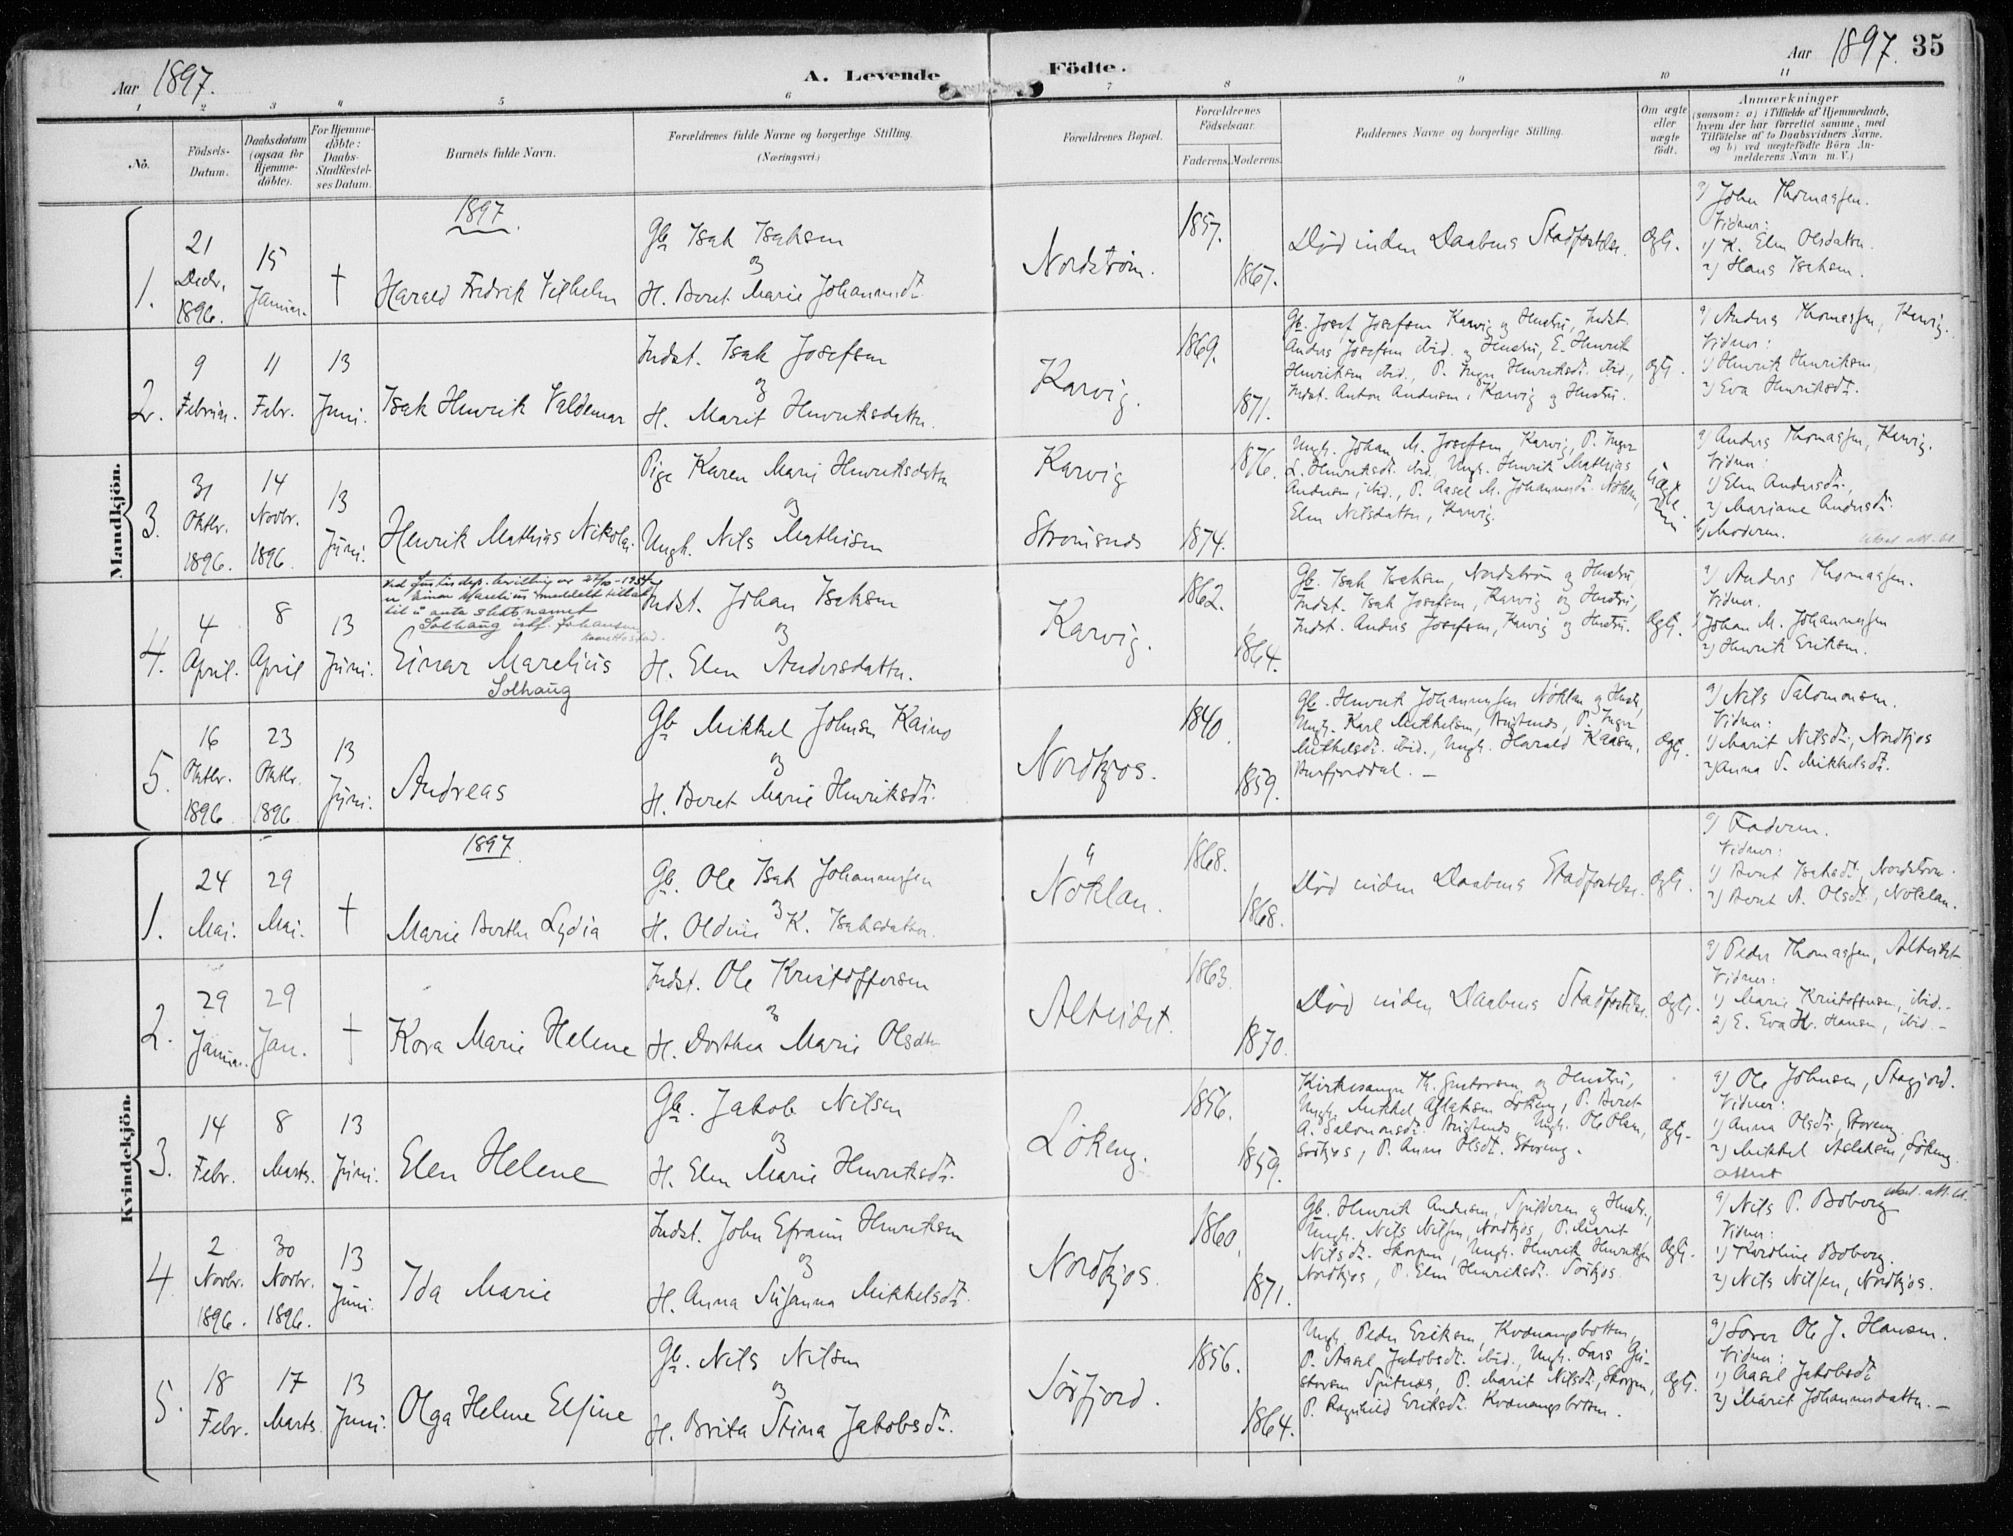 Aar 1897.
A. Levende
Födte.
Aar 1897. 35
1 2 3 4 5 6 7 8 9 10 11
No.
Födsels-
Datum.
Daabsdatum
(ogsaa for
Hjemme-
döbte).
For Hjemme-
döbte:
Daabs-
Stadfæstel-
ses Datum.
Barnets fulde Navn.
Forældrenes fulde Navne og borgerlige Stilling.
(Næringsvei.)
Forældrenes Bopæl.
Forældrenes
Födselsaar.
Faderens. Moderens.
Faddernes Navne og borgerlige Stilling.
Om ægte
eller
uægte
födt.
Anmærkninger
(saasom: a) i Tilfælde af Hjemmedaab,
hvem der har forrettet samme, med
Tilföielse af to Daabsvidners Navne,
og b) ved uægtefödte Börn An-
melderens Navn m. V.)
Mandkjön.
1897
1.
21
Decbr.
1896.
15
Januar.
†
Harald Fredrik Vilhelm
Gb. Isak Isaksen
og
H. Beret Marie Johannesdt.
Nordström.
1857.
1867.
Död inden Daabens Stadfæstelse.
ægte.
a) John Thomassen.
Vidner:
1) K. Elen Olsdatter.
2) Hans Isaksen.
2.
9
Februar.
11
Febr.
13
Juni.
Isak Henrik Valdemar
Indst. Isak Josefsen
og
H. Marit Henriksdatter.
Karvig.
1869.
1871.
Gb. Josef Josefsen Karvig og Hustru, Indst.
Anders Josefsen ibid. og Hustru, E. Henrik
Henriksen ibid., P. Inger Henriksdt. ibid.,
Indst. Anton Andersen i Karvig og Hustru.
ægte.
a) Anders Thomassen, Karvig.
Vidner:
1) Henrik Henriksen,
2) Eva Henriksdt.
3.
31
Oktbr.
1896.
14
Novbr.
1896.
13
Juni.
Henrik Mathias Nikolai.
Pige Karen Marie Henriksdatter
og
Ungk. Nils Mathisen
Karvig
Strömsnes
1876.
1874.
Ungk. Johan M. Josefsen, Karvig, P. Inger
L. Henriksdt. ibid., Ungk. Henrik Mathias
Andersen, ibid., P. Aasel M. Johannesdt. Nöklan,
Elen Nilsdatter, Karvig.
a) Anders Thomassen, Karvig.
Vidner:
1) Elen Andersdt.,
2) Mariane Andersdt.
b) Moderen.
4.
4
April.
8
April
13
Juni.
til å anta slektsnavnet
Solhaug istf. Johansen
Einar Marelius
Solhaug
Indst. Johan Isaksen
og
H. Elen Andersdatter.
Karvig.
1862.
1864.
Gb. Isak Isaksen, Nordström og Hustru,
Indst. Isak Josefsen, Karvig og Hustru,
Indst. Anders Josefsen, Karvig og Hustru.
ægte.
a) Anders Thomassen.
Vidner.
1) Johan M. Johannessen
2) Henrik Eriksen.
5.
16
Oktbr.
1896
23
Oktbr.
1896
13
Juni.
Andreas
Gb. Mikkel Johnsen Kaino
og
H. Beret Marie Henriksdt.
Nordkjos.
1840.
1859.
Gb. Henrik Johannessen Nöklan og Hustru,
Ungk. Karl Mikkelsen, P. Inger
Mikkelsdt. ibid., Ungk. Harald Kaasen,
Burfjorddal. —
ægte.
a) Nils Salomonsen.
Vidner:
1) Marit Nilsdt., Nordkjos
2) Anna S. Mikkelsdt.
Kvindekjön.
1897
1.
24
Mai.
29
Mai.
†
Marie Berthe Lydia
Gb. Ole Isak Johannessen
og
H. Oldine K. Isaksdatter.
Nöklan.
1868.
1868.
Död inden Daabens Stadfæstelse.
ægte.
a) Faderen.
Vidner:
1) Beret Isaksdt., Nordström.
2) Beret A. Olsdt., Nöklan.
2.
29
Januar.
29
Jan.
†
Kora Marie Helene
Indst. Ole Kristoffersen
og
H. Dorthea Marie Olsdtr
Alteidet.
1863.
1870.
Död inden Daabens Stadfæstelse.
ægte.
a) Peder Thomassen, Alteidet
Vidner:
1) Marie Kristoffersen, ibid. -
2) E. Eva H. Hansen, ibid. -
3.
14
Febr.
8
Marts.
13
Juni.
Elen Helene
Gb. Jakob Nilsen
og
H. Elen Marie Henriksdt.
Lökeng.
1856.
1859.
Kirkesanger Th. Gustavsen og Hustru,
Ungk. Mikkel Aslaksen Lökeng, P. Beret
A. Salomonsdt. Ungk. Ole Olsen,
Sörkjos, P. Anna Olsdt. Storeng.
ægte.
a) Ole Johnsen, Stagjord.
Vidner:
1) Anna Olsdt., Storeng
2) Mikkel Aslaksen, Lökeng.
4.
2
Novbr.
1896.
30
Novbr.
1896.
13
Juni.
Ida Marie
Indst. John Efraim Henriksen
og
H. Anna Susanna Mikkelsdt.
Nordkjos.
1860.
1871.
Gb. Henrik Andersen, Spilderen og Hustru,
Ungk. Nils Nilsen, Nordkjos, P. Marit
Nilsdt. Skorpen, Ungk. Henrik Henriksen
Nordkjos, P. Elen Henriksdt. Sörkjos.
ægte.
a) Nils P. Boberg
Vidner:
1) Karoline Boberg
2) Nils Nilsen, Nordkjos.
5.
18
Febr.
17
Marts.
13
Juni.
Olga Helene Elfine
Gb. Nils Nilsen
og
H. Brita Stina Jakobsdt.
Sörfjord.
1856.
1864.
Ungk. Peder Eriksen, Kvænangsbotten,
P. Aasel Jakobsdt. ibid., Ungk. Lars Gu-
stavsen Spilnes, P. Marit Nilsdt., Skorpen,
P. Ragnhild Eriksdt. Kvænangsbotten.
ægte.
a) Lærer Ole J. Hansen.
Vidner:
1) Aasel Jakobsdt.
2) Marit Johannesdatter. —